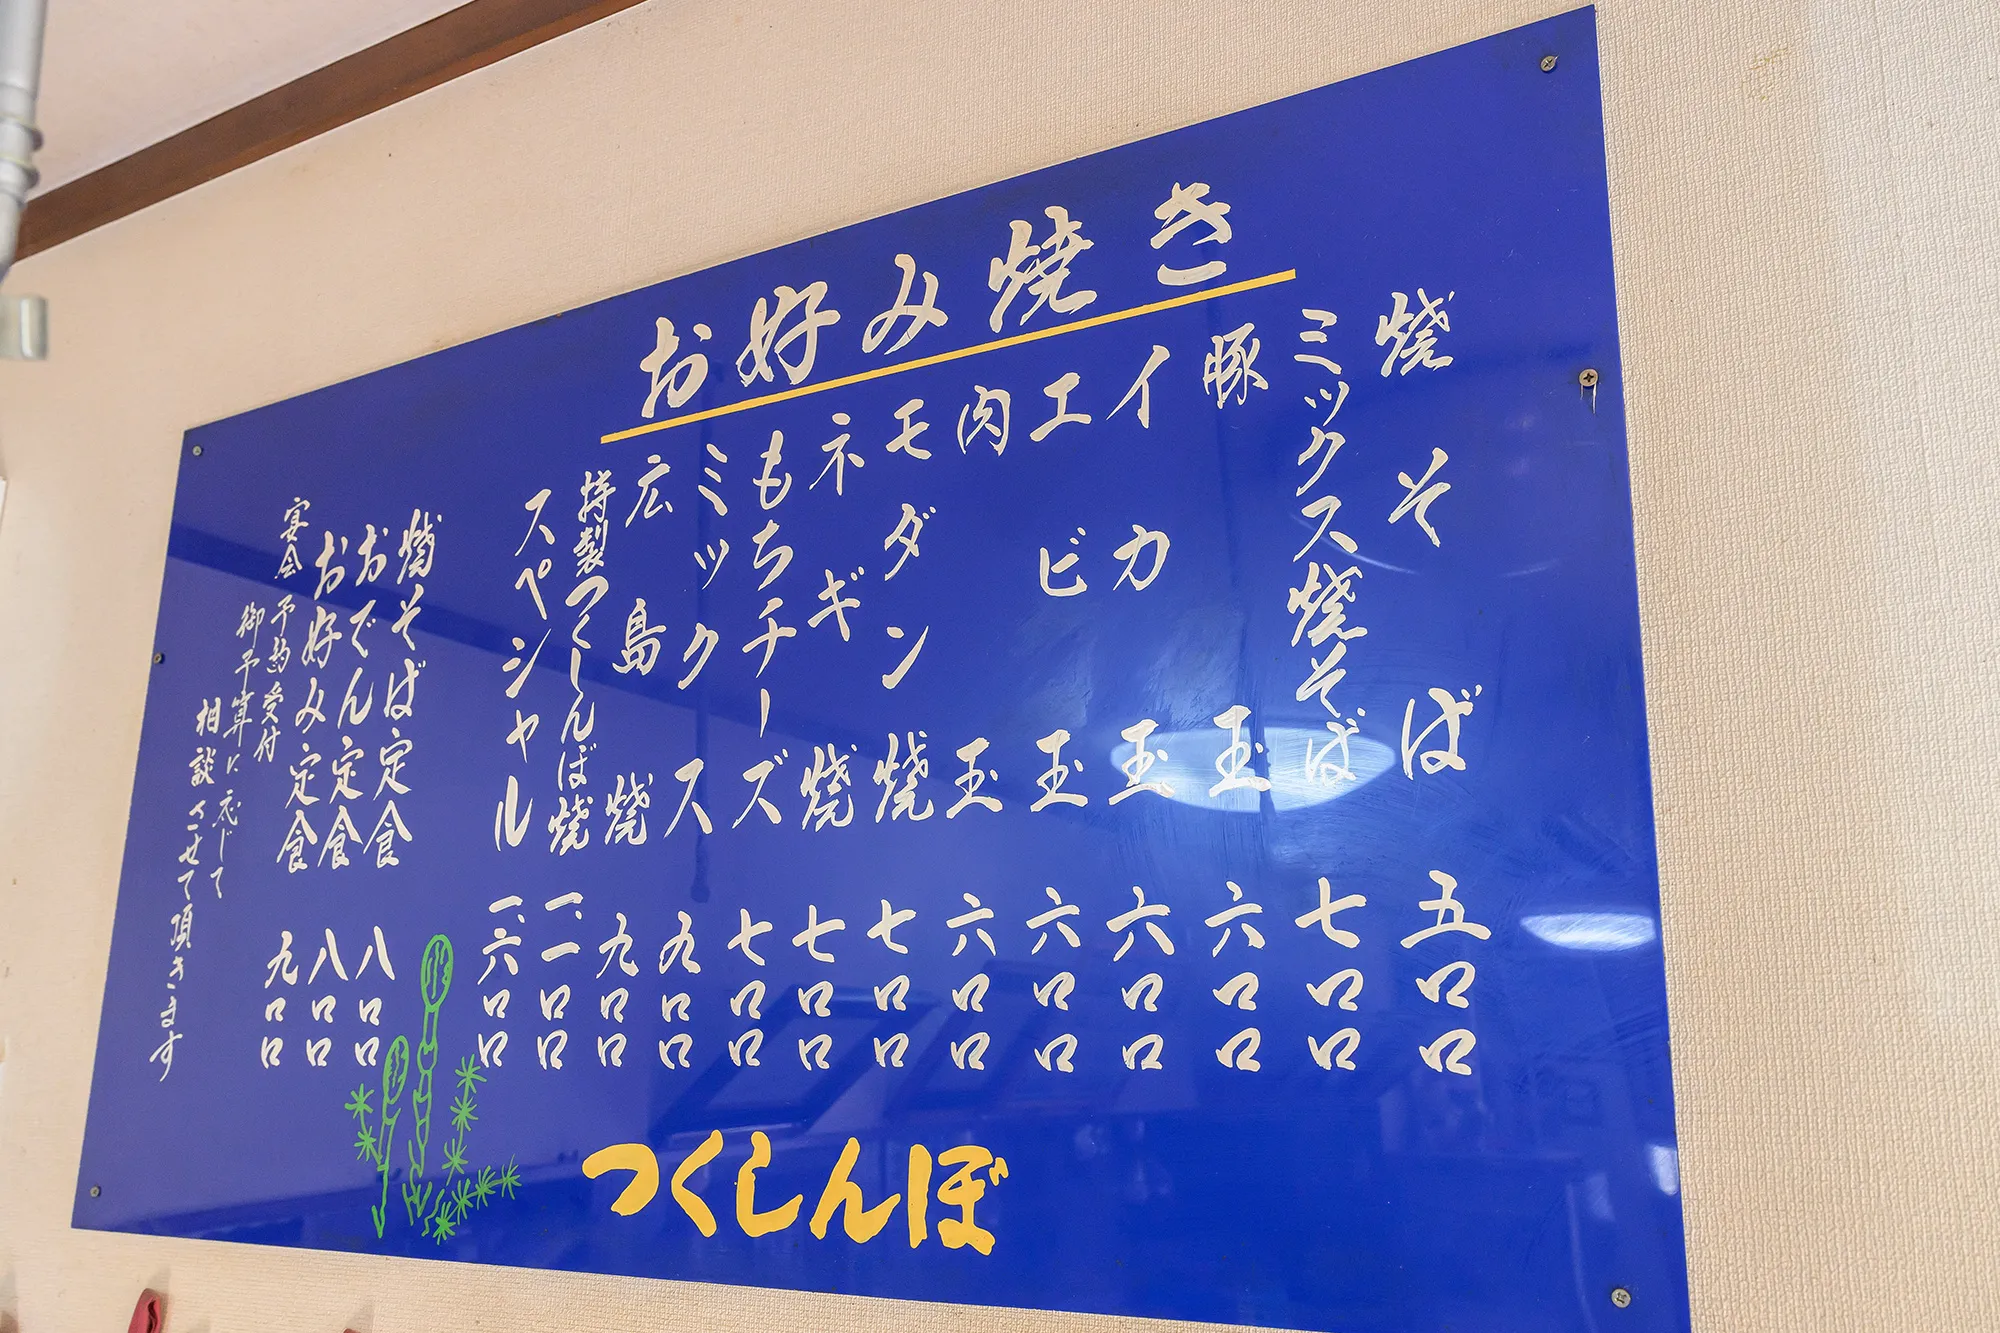 お好み焼き
焼そば 五〇〇
ミックス焼そば 七〇〇
豚玉 六〇〇
イカ玉 六〇〇
エビ玉 六〇〇
肉玉 六〇〇
モダン焼 七〇〇
ネギ焼 七〇〇
もちチーズ 七〇〇
ミックス 九〇〇
広島焼 九〇〇
特製つくしんぼ焼 一、一〇〇
スペシャル 一、六〇〇
焼そば定食 八〇〇
おでん定食 八〇〇
お好み定食 九〇〇
宴会予約受付
御予算に応じて
相談させて頂きます
つくしんぼ